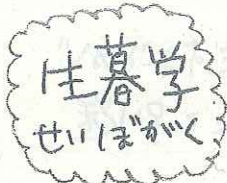 生暮学
せいぼがく